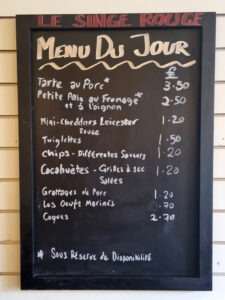 LE SINGE ROUGE
MENU DU JOUR
£
Tarte au Porc* 3.50
Petite Pain au Fromage* 2.50
et à l'oignon
Mini-cheddars Leicester 1.20
Rouge
Twiglettes 1.50
Chips - Différentes Saveurs 1.20
Cacahuètes - Grillés à sec 1.20
Salées
Grattages de Porc 1.20
Les Oeufs Marinés .70
Coques 2.70
* Sous Réserve de Disponibilité